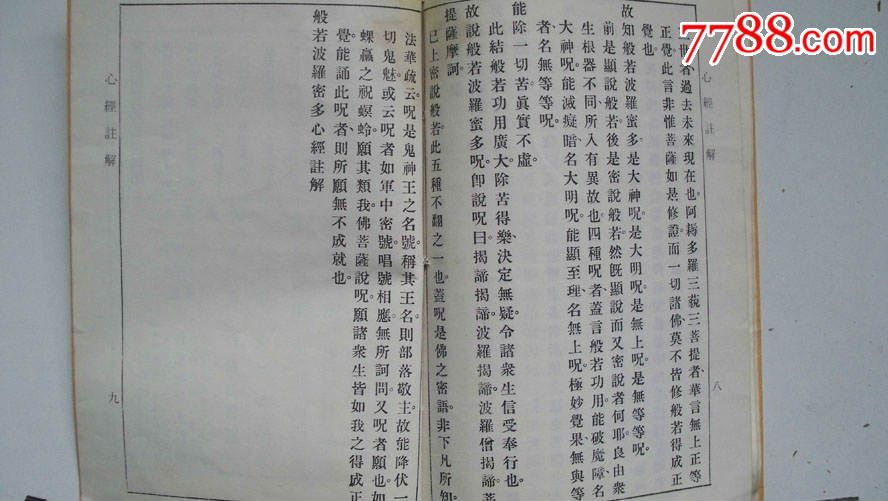 7788.com
心經註解
八
三世者、過去未來現在也。阿耨多羅三藐三菩提者、華言無上正等
正覺。此言非惟菩薩如是修證而一切諸佛莫不皆修般若得成正
覺也。
故知般若波羅蜜多是大神呪是大明呪是無上呪是無等等呪。
前是顯說般若後是密說般若然既顯說而又密說者何耶良由衆
生根器不同所入有異故也四種呪者蓋言般若功用能破魔障名
大神呪能滅癡暗名大明呪能顯至理名無上呪極妙覺果無與等
者名無等等呪。
能除一切苦眞實不虛。
此結般若功用廣大除苦得樂決定無疑令諸衆生信受奉行也。
故說般若波羅蜜多呪卽說呪曰揭諦揭諦波羅揭諦波羅僧揭諦菩
提薩摩訶。
已上密說般若此五種不翻之一也蓋呪是佛之密語非下凡所知。
法華疏云呪是鬼神王之名號稱其王名則部落敬主故能降伏一
切鬼魅或云呪者如軍中密號唱號相應無所訶問又呪者願也如
蜾蠃之祝螟蛉願其類我佛菩薩說呪願諸衆生皆如我之得成正
覺能誦此呪者則所願無不成就也。
般若波羅密多心經註解
心經註解
九